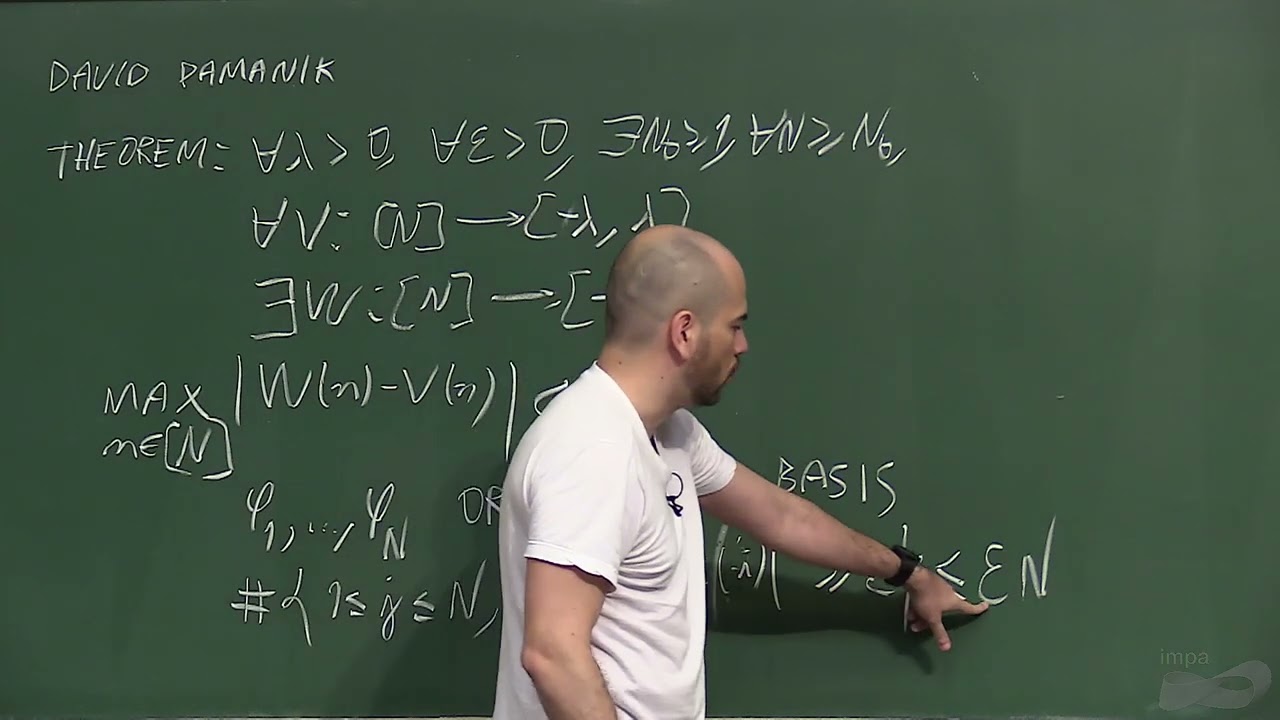 DAVID DAMANIK
THEOREM: ∀λ > 0, ∀ε > 0, ∃N₀ ≥ 1, ∀N ≥ N₀,
∀V: [N] → [-λ, λ]
∃W: [N] → [-
MAX n∈[N] |W(n) - V(n)| <
φ₁, ..., φ_N OR BASIS
#{1 ≤ j ≤ N, | ≥ ε} ≤ εN
impa